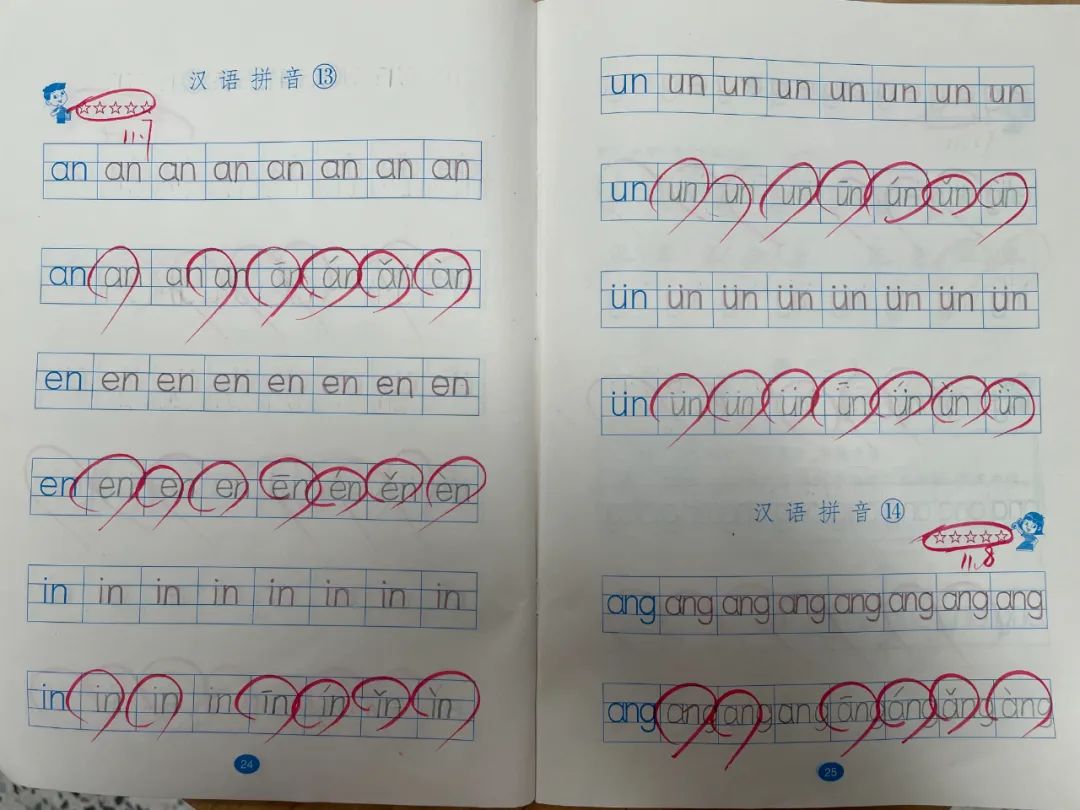 汉语拼音⑬
☆☆☆☆☆
11.7
an an an an an an an an
an an an an ān án ǎn àn
en en en en en en en en
en en en en ēn én ěn èn
in in in in in in in in
in in in in īn ín ǐn ìn
24
un un un un un un un un
un un un un ūn ún ǔn ùn
ün ün ün ün ün ün ün ün
ün ün ün ün ǖn ǘn ǚn ǜn
汉语拼音⑭
☆☆☆☆☆
11.8
ang ang ang ang ang ang ang ang
ang ang ang ang āng áng ǎng àng
25